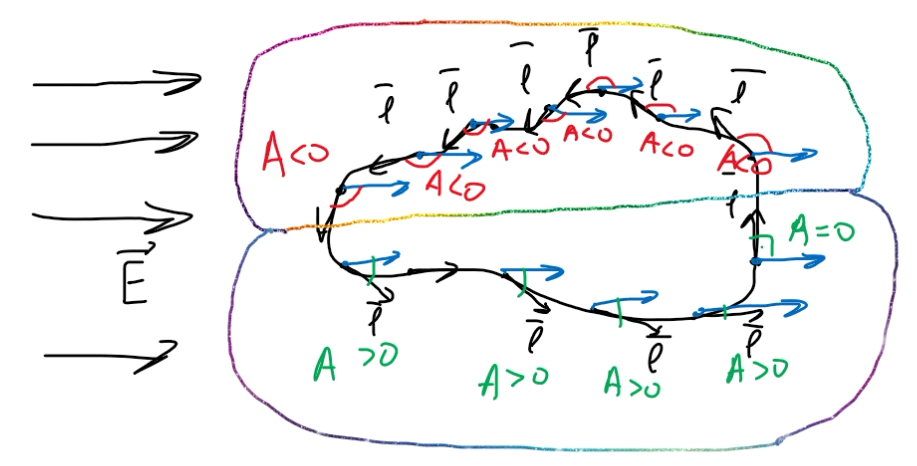 l̄
l̄ l̄
l̄ l̄ l̄
A<0 A<0 A<0 A<0 A<0
A<0
l̄
A=0
E⃗
l̄ l̄ l̄ l̄
A>0 A>0 A>0 A>0